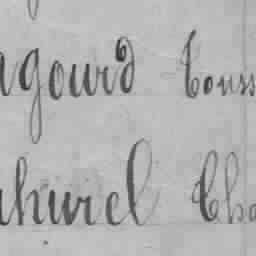 agourd Touss
ahurel Cha